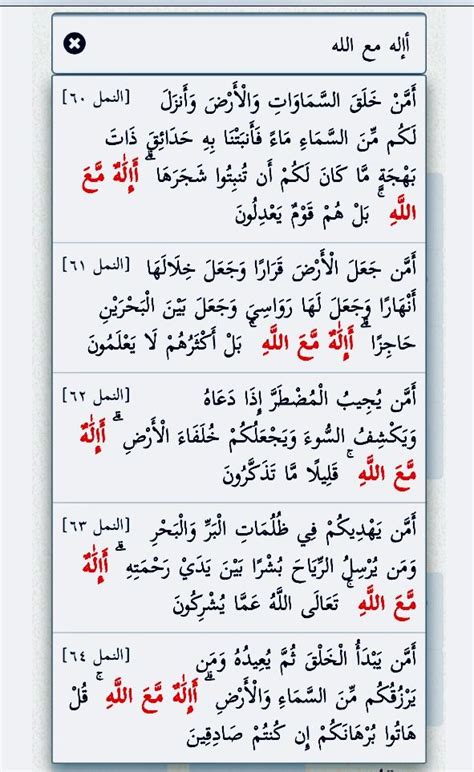 أإله مع الله
أَمَّنْ خَلَقَ السَّمَاوَاتِ وَالْأَرْضَ وَأَنزَلَ [النمل ٦٠]
لَكُم مِّنَ السَّمَاءِ مَاءً فَأَنبَتْنَا بِهِ حَدَائِقَ ذَاتَ
بَهْجَةٍ مَّا كَانَ لَكُمْ أَن تُنبِتُوا شَجَرَهَا ۗ أَإِلَٰهٌ مَّعَ
اللَّهِ ۚ بَلْ هُمْ قَوْمٌ يَعْدِلُونَ
أَمَّن جَعَلَ الْأَرْضَ قَرَارًا وَجَعَلَ خِلَالَهَا [النمل ٦١]
أَنْهَارًا وَجَعَلَ لَهَا رَوَاسِيَ وَجَعَلَ بَيْنَ الْبَحْرَيْنِ
حَاجِزًا ۗ أَإِلَٰهٌ مَّعَ اللَّهِ ۚ بَلْ أَكْثَرُهُمْ لَا يَعْلَمُونَ
أَمَّن يُجِيبُ الْمُضْطَرَّ إِذَا دَعَاهُ [النمل ٦٢]
وَيَكْشِفُ السُّوءَ وَيَجْعَلُكُمْ خُلَفَاءَ الْأَرْضِ ۗ أَإِلَٰهٌ
مَّعَ اللَّهِ ۚ قَلِيلًا مَّا تَذَكَّرُونَ
أَمَّن يَهْدِيكُمْ فِي ظُلُمَاتِ الْبَرِّ وَالْبَحْرِ [النمل ٦٣]
وَمَن يُرْسِلُ الرِّيَاحَ بُشْرًا بَيْنَ يَدَيْ رَحْمَتِهِ ۗ أَإِلَٰهٌ
مَّعَ اللَّهِ ۚ تَعَالَى اللَّهُ عَمَّا يُشْرِكُونَ
أَمَّن يَبْدَأُ الْخَلْقَ ثُمَّ يُعِيدُهُ وَمَن [النمل ٦٤]
يَرْزُقُكُم مِّنَ السَّمَاءِ وَالْأَرْضِ ۗ أَإِلَٰهٌ مَّعَ اللَّهِ ۚ قُلْ
هَاتُوا بُرْهَانَكُمْ إِن كُنتُمْ صَادِقِينَ